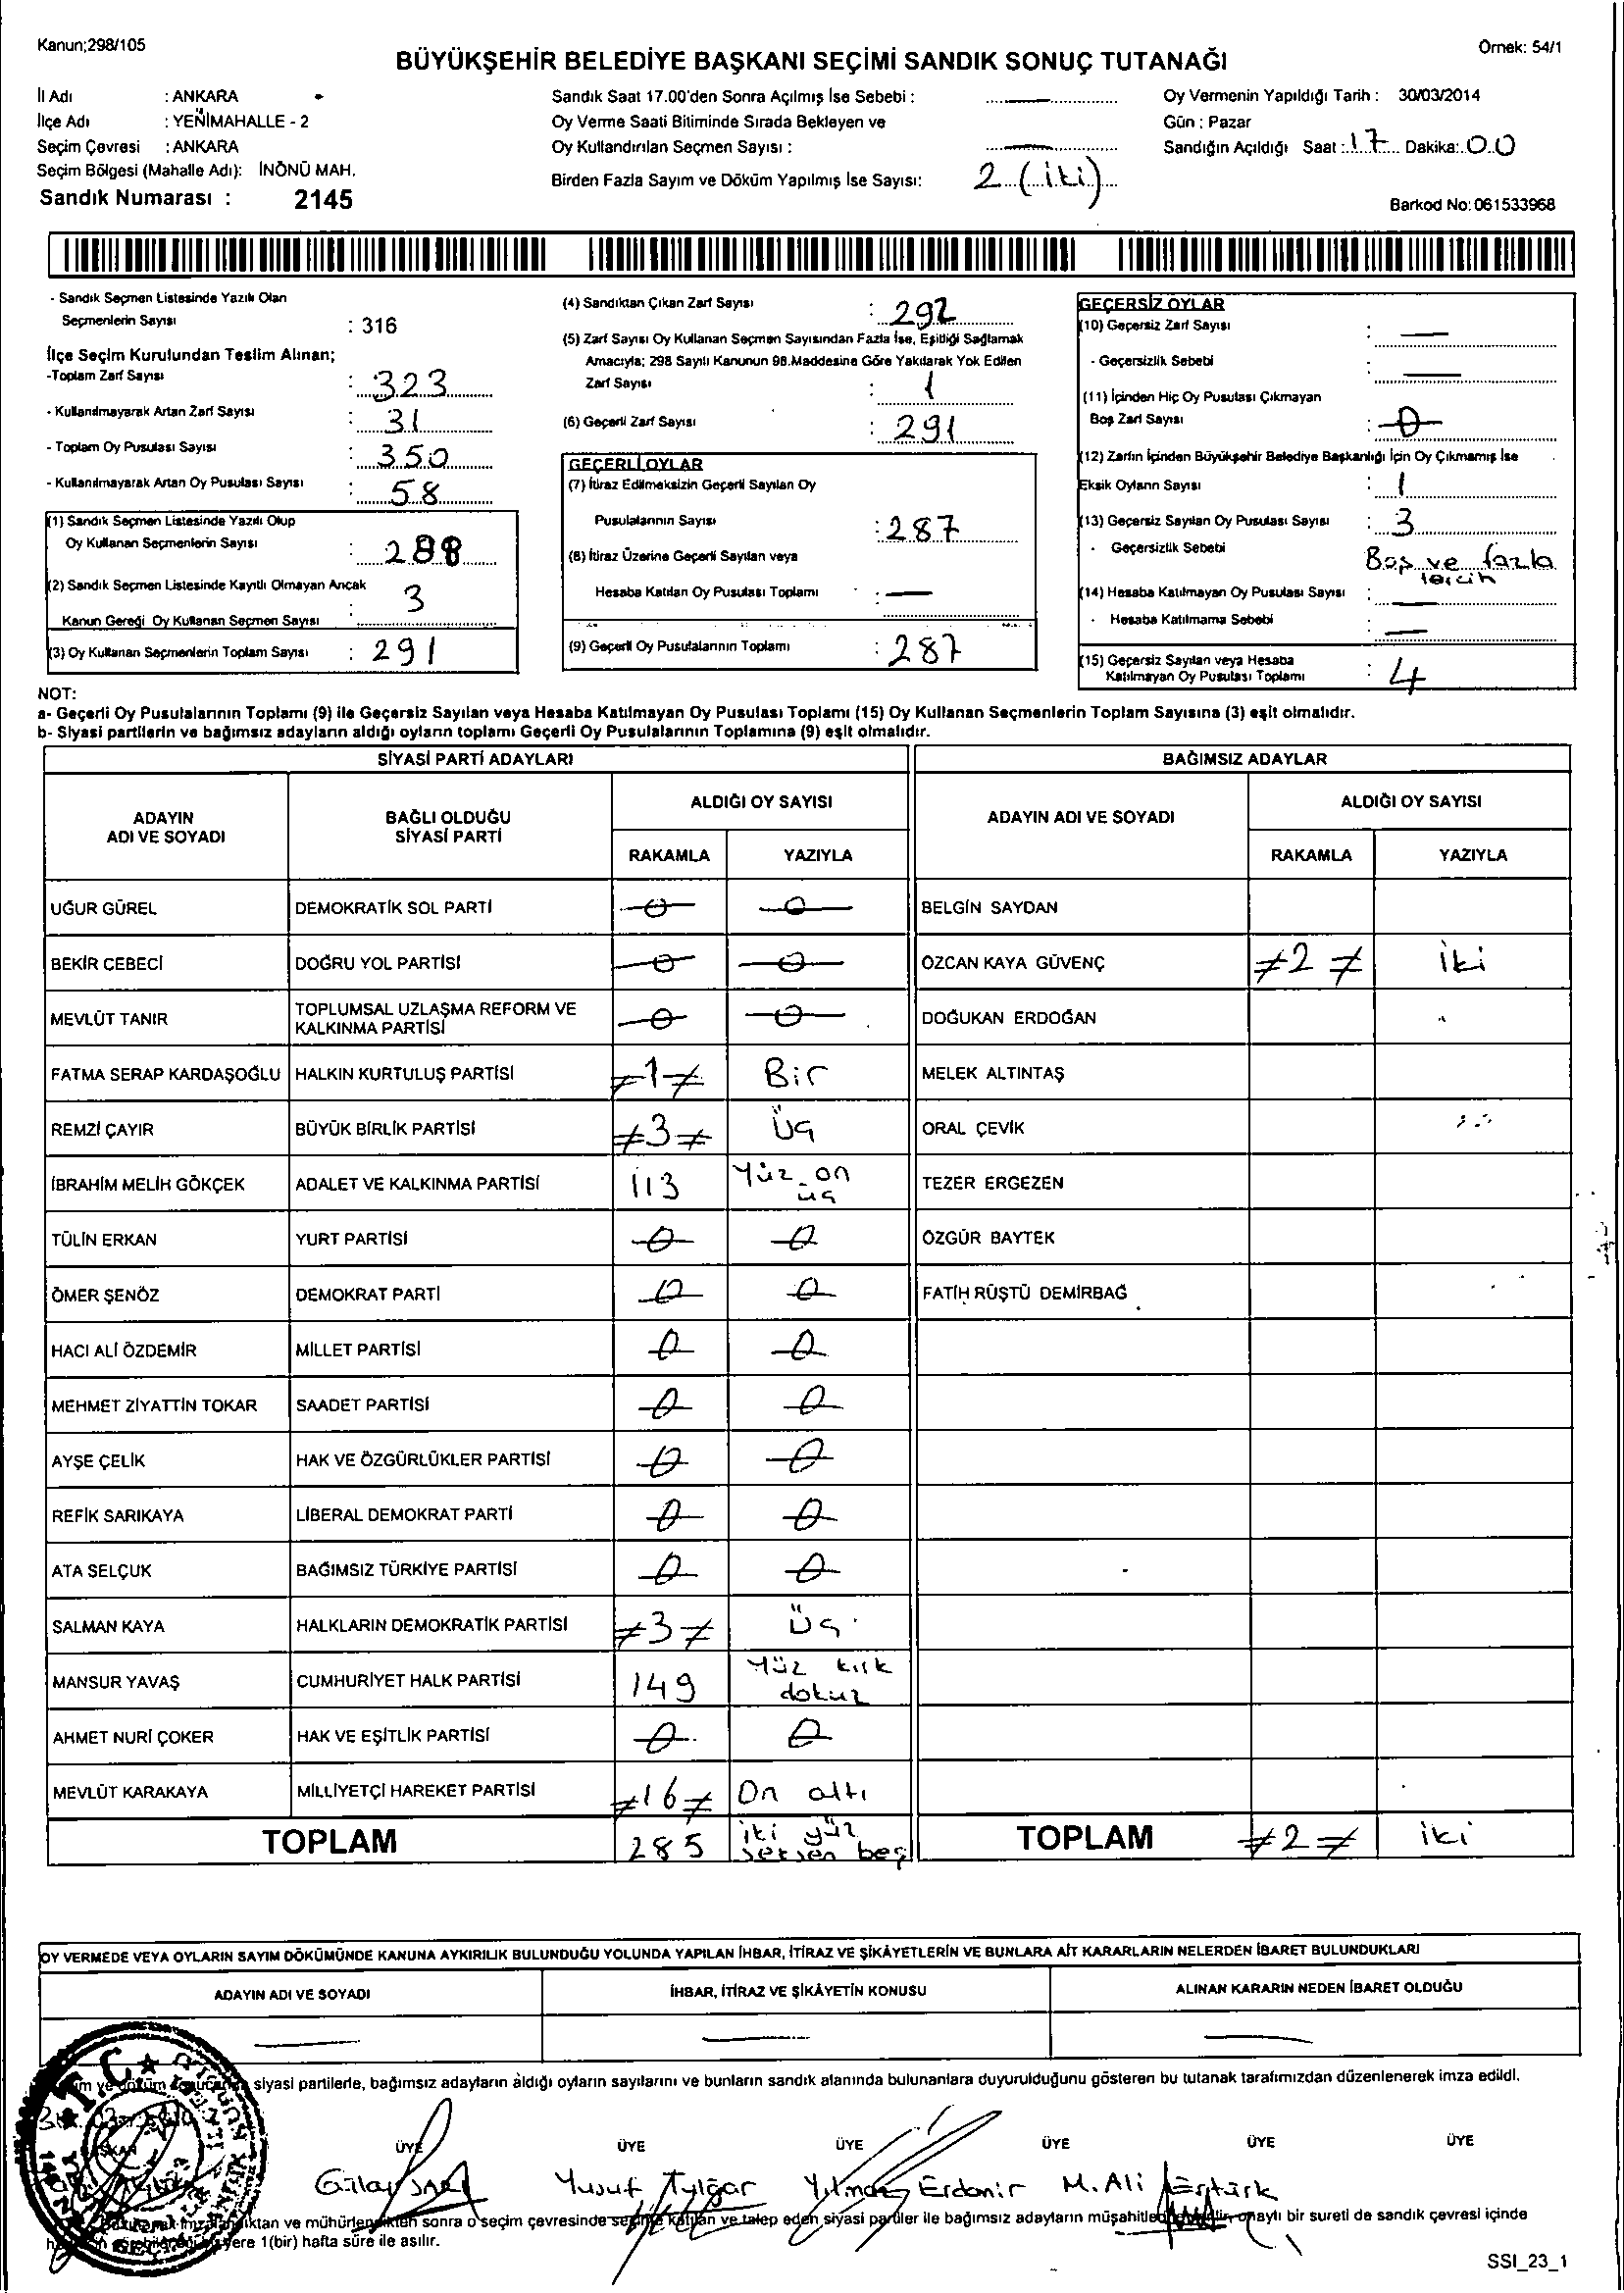 Kanun;298/105
Örnek: 54/1
BÜYÜKŞEHİR BELEDİYE BAŞKANI SEÇİMİ SANDIK SONUÇ TUTANAĞI
İl Adı : ANKARA
İlçe Adı : YENİMAHALLE - 2
Seçim Çevresi : ANKARA
Seçim Bölgesi (Mahalle Adı): İNÖNÜ MAH.
Sandık Numarası : 2145
Sandık Saat 17.00'den Sonra Açılmış İse Sebebi :
Oy Verme Saati Bitiminde Sırada Bekleyen ve
Oy Kullandırılan Seçmen Sayısı :
Birden Fazla Sayım ve Döküm Yapılmış İse Sayısı: 2 (iki)
Oy Vermenin Yapıldığı Tarih : 30/03/2014
Gün : Pazar
Sandığın Açıldığı Saat : 17 Dakika: 00
Barkod No: 061533968
- Sandık Seçmen Listesinde Yazılı Olan
Seçmenlerin Sayısı : 316
İlçe Seçim Kurulundan Teslim Alınan;
-Toplam Zarf Sayısı : 323
- Kullanılmayarak Artan Zarf Sayısı : 31
- Toplam Oy Pusulası Sayısı : 350
- Kullanılmayarak Artan Oy Pusulası Sayısı : 58
(1) Sandık Seçmen Listesinde Yazılı Olup
Oy Kullanan Seçmenlerin Sayısı : 288
(2) Sandık Seçmen Listesinde Kayıtlı Olmayan Ancak
Kanun Gereği Oy Kullanan Seçmen Sayısı : 3
(3) Oy Kullanan Seçmenlerin Toplam Sayısı : 291
(4) Sandıktan Çıkan Zarf Sayısı : 292
(5) Zarf Sayısı Oy Kullanan Seçmen Sayısından Fazla İse, Eşitliği Sağlamak
Amacıyla; 298 Sayılı Kanunun 98.Maddesine Göre Yakılarak Yok Edilen
Zarf Sayısı : 1
(6) Geçerli Zarf Sayısı : 291
GEÇERLİ OYLAR
(7) İtiraz Edilmeksizin Geçerli Sayılan Oy
Pusulalarının Sayısı : 287
(8) İtiraz Üzerine Geçerli Sayılan veya
Hesaba Katılan Oy Pusulası Toplamı : —
(9) Geçerli Oy Pusulalarının Toplamı : 287
GEÇERSİZ OYLAR
(10) Geçersiz Zarf Sayısı : —
- Geçersizlik Sebebi : —
(11) İçinden Hiç Oy Pusulası Çıkmayan
Boş Zarf Sayısı : 0
(12) Zarfın İçinden Büyükşehir Belediye Başkanlığı İçin Oy Çıkmamış İse
Eksik Oyların Sayısı : 1
(13) Geçersiz Sayılan Oy Pusulası Sayısı : 3
- Geçersizlik Sebebi Boş ve fazla
tercih
(14) Hesaba Katılmayan Oy Pusulası Sayısı : —
- Hesaba Katılmama Sebebi : —
(15) Geçersiz Sayılan veya Hesaba
Katılmayan Oy Pusulası Toplamı : 4
NOT:
a- Geçerli Oy Pusulalarının Toplamı (9) ile Geçersiz Sayılan veya Hesaba Katılmayan Oy Pusulası Toplamı (15) Oy Kullanan Seçmenlerin Toplam Sayısına (3) eşit olmalıdır.
b- Siyasi partilerin ve bağımsız adayların aldığı oyların toplamı Geçerli Oy Pusulalarının Toplamına (9) eşit olmalıdır.
SİYASİ PARTİ ADAYLARI
BAĞIMSIZ ADAYLAR
ADAYIN ADI VE SOYADI
BAĞLI OLDUĞU SİYASİ PARTİ
ALDIĞI OY SAYISI
RAKAMLA YAZIYLA
ADAYIN ADI VE SOYADI
ALDIĞI OY SAYISI
RAKAMLA YAZIYLA
UĞUR GÜREL DEMOKRATİK SOL PARTİ 0 0 BELGİN SAYDAN
BEKİR ÇEBECİ DOĞRU YOL PARTİSİ 0 0 ÖZCAN KAYA GÜVENÇ ≠2≠ iki
MEVLÜT TANIR TOPLUMSAL UZLAŞMA REFORM VE KALKINMA PARTİSİ 0 0 DOĞUKAN ERDOĞAN
FATMA SERAP KARDAŞOĞLU HALKIN KURTULUŞ PARTİSİ ≠1≠ Bir MELEK ALTINTAŞ
REMZİ ÇAYIR BÜYÜK BİRLİK PARTİSİ ≠3≠ Üç ORAL ÇEVİK
İBRAHİM MELİH GÖKÇEK ADALET VE KALKINMA PARTİSİ 113 Yüz on üç TEZER ERGEZEN
TÜLİN ERKAN YURT PARTİSİ 0 0 ÖZGÜR BAYTEK
ÖMER ŞENÖZ DEMOKRAT PARTİ 0 0 FATİH RÜŞTÜ DEMİRBAĞ
HACI ALİ ÖZDEMİR MİLLET PARTİSİ 0 0
MEHMET ZİYATTİN TOKAR SAADET PARTİSİ 0 0
AYŞE ÇELİK HAK VE ÖZGÜRLÜKLER PARTİSİ 0 0
REFİK SARIKAYA LİBERAL DEMOKRAT PARTİ 0 0
ATA SELÇUK BAĞIMSIZ TÜRKİYE PARTİSİ 0 0
SALMAN KAYA HALKLARIN DEMOKRATİK PARTİSİ ≠3≠ Üç
MANSUR YAVAŞ CUMHURİYET HALK PARTİSİ 149 Yüz kırk dokuz
AHMET NURİ ÇOKER HAK VE EŞİTLİK PARTİSİ 0 0
MEVLÜT KARAKAYA MİLLİYETÇİ HAREKET PARTİSİ ≠16≠ On altı
TOPLAM 285 iki yüz seksen beş TOPLAM ≠2≠ iki
OY VERMEDE VEYA OYLARIN SAYIM DÖKÜMÜNDE KANUNA AYKIRILIK BULUNDUĞU YOLUNDA YAPILAN İHBAR, İTİRAZ VE ŞİKÂYETLERİN VE BUNLARA AİT KARARLARIN NELERDEN İBARET BULUNDUKLARI
ADAYIN ADI VE SOYADI İHBAR, İTİRAZ VE ŞİKÂYETİN KONUSU ALINAN KARARIN NEDEN İBARET OLDUĞU
siyasi partilerle, bağımsız adayların aldığı oyların sayılarını ve bunların sandık alanında bulunanlara duyurulduğunu gösteren bu tutanak tarafımızdan düzenlenerek imza edildi.
T.C.
ÜYE ÜYE ÜYE ÜYE ÜYE ÜYE
Yusuf Yılmaz Erdemir M. Ali
ve mühürlendikten sonra o seçim çevresinde seçime katılan ve talep eden siyasi partiler ile bağımsız adayların onaylı bir sureti de sandık çevresi içinde
yere 1(bir) hafta süre ile asılır.
SSI_23_1